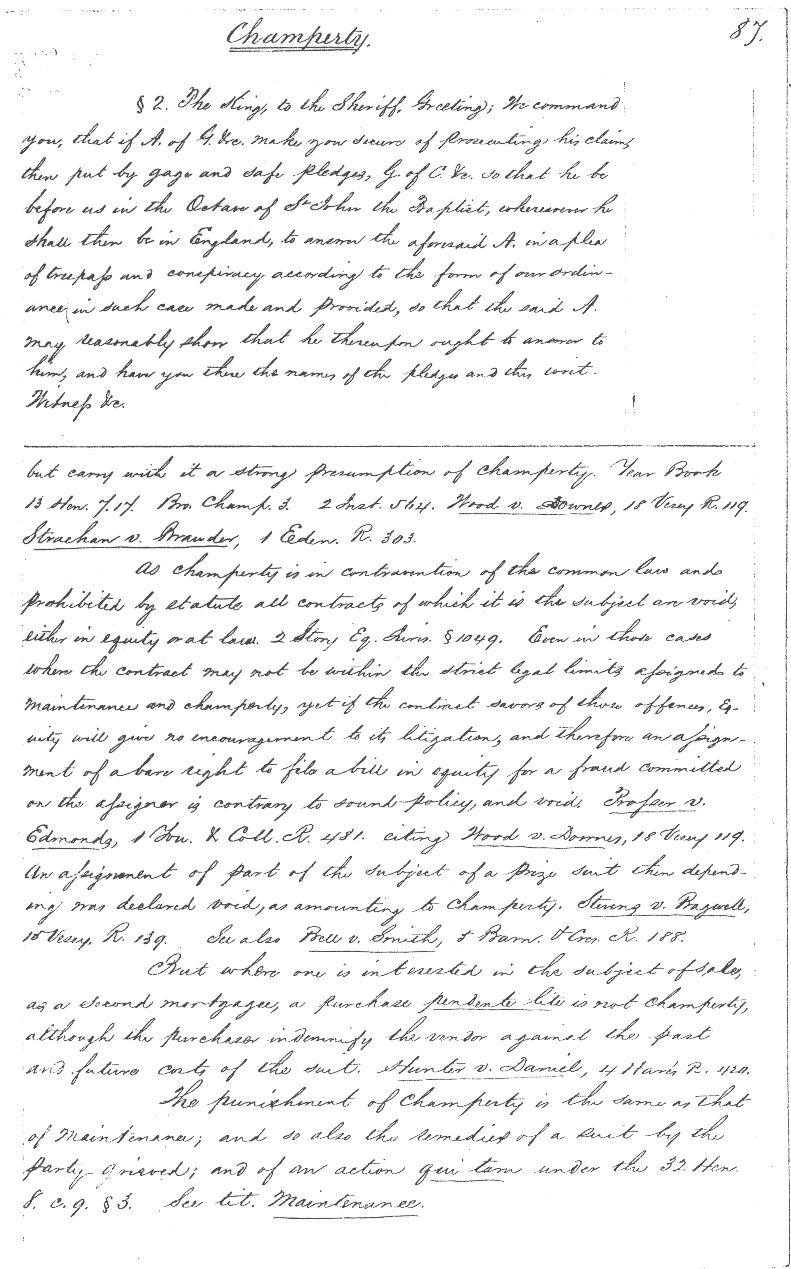 Champerty.
87.
§ 2. The King, to the Sheriff, Greeting; We command
you, that if A. of G. &c. make you secure of prosecuting his claim,
then put by gage and safe pledges, G. of C. &c. so that he be
before us in the Octave of St. John the Baptist, wheresoever he
shall then be in England, to answer the aforesaid A. in a plea
of trespass and conspiracy according to the form of our ordin-
ance, in such case made and provided, so that the said A.
may reasonably show that he thereupon ought to answer to
him, and have you there the names of the pledges and this writ.
Witness &c.
but carry with it a strong presumption of champerty. Year Book
13 Hen. 7. 17. Bro. Champ. 3. 2 Inst. 564. Wood v. Downes, 18 Vesey R. 119.
Strachan v. Brander, 1 Eden. R. 303.
As champerty is in contravention of the common law and
prohibited by statute, all contracts of which it is the subject are void,
either in equity or at law. 2 Story Eq. Juris. § 1049. Even in those cases
where the contract may not be within the strict legal limits assigned to
maintenance and champerty, yet if the contract savors of those offences, Eq-
uity will give no encouragement to its litigation, and therefore an assign-
ment of a bare right to file a bill in equity for a fraud committed
on the assigner is contrary to sound policy, and void. Prosser v.
Edmonds, 1 You. & Coll. R. 481. citing Wood v. Downes, 18 Vesey 119.
An assignment of part of the subject of a prize suit then depend-
ing was declared void, as amounting to champerty. Stevens v. Bagwell,
15 Vesey. R. 139. See also Bell v. Smith, 5 Barn. & Cres. R. 188.
But where one is interested in the subject of sale,
as a second mortgagee, a purchase pendente lite is not champerty,
although the purchaser indemnify the vendor against the past
and future costs of the suit. Hunter v. Daniel, 4 Hare's R. 420.
The punishment of Champerty is the same as that
of Maintenance; and so also the remedies of a suit by the
party grieved; and of an action qui tam under the 32 Hen.
8. c. 9. § 3. See tit. Maintenance.